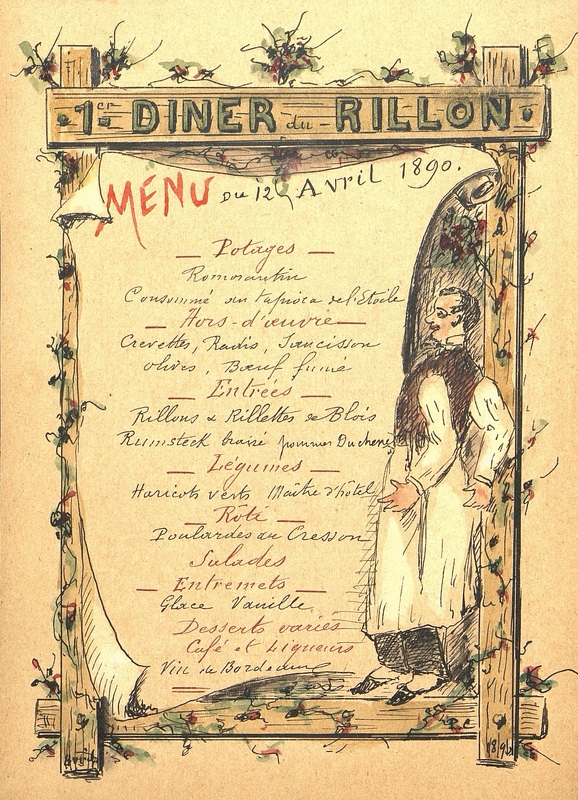 1er DINER du RILLON
MENU du 12 Avril 1890.
— Potages —
Romorantin
Consommé au tapioca de l'Etoile
— Hors-d'œuvre —
Crevettes, Radis, Saucisson
olives, Bœuf fumé
— Entrées —
Rillons & Rillettes de Blois
Rumsteck braisé pommes Duchesse
— Légumes —
Haricots verts Maître d'hôtel
— Rôti —
Poulardes au Cresson
Salades
— Entremets —
Glace Vanille
Desserts variés
Café et Liqueurs
Vin de Bordeaux